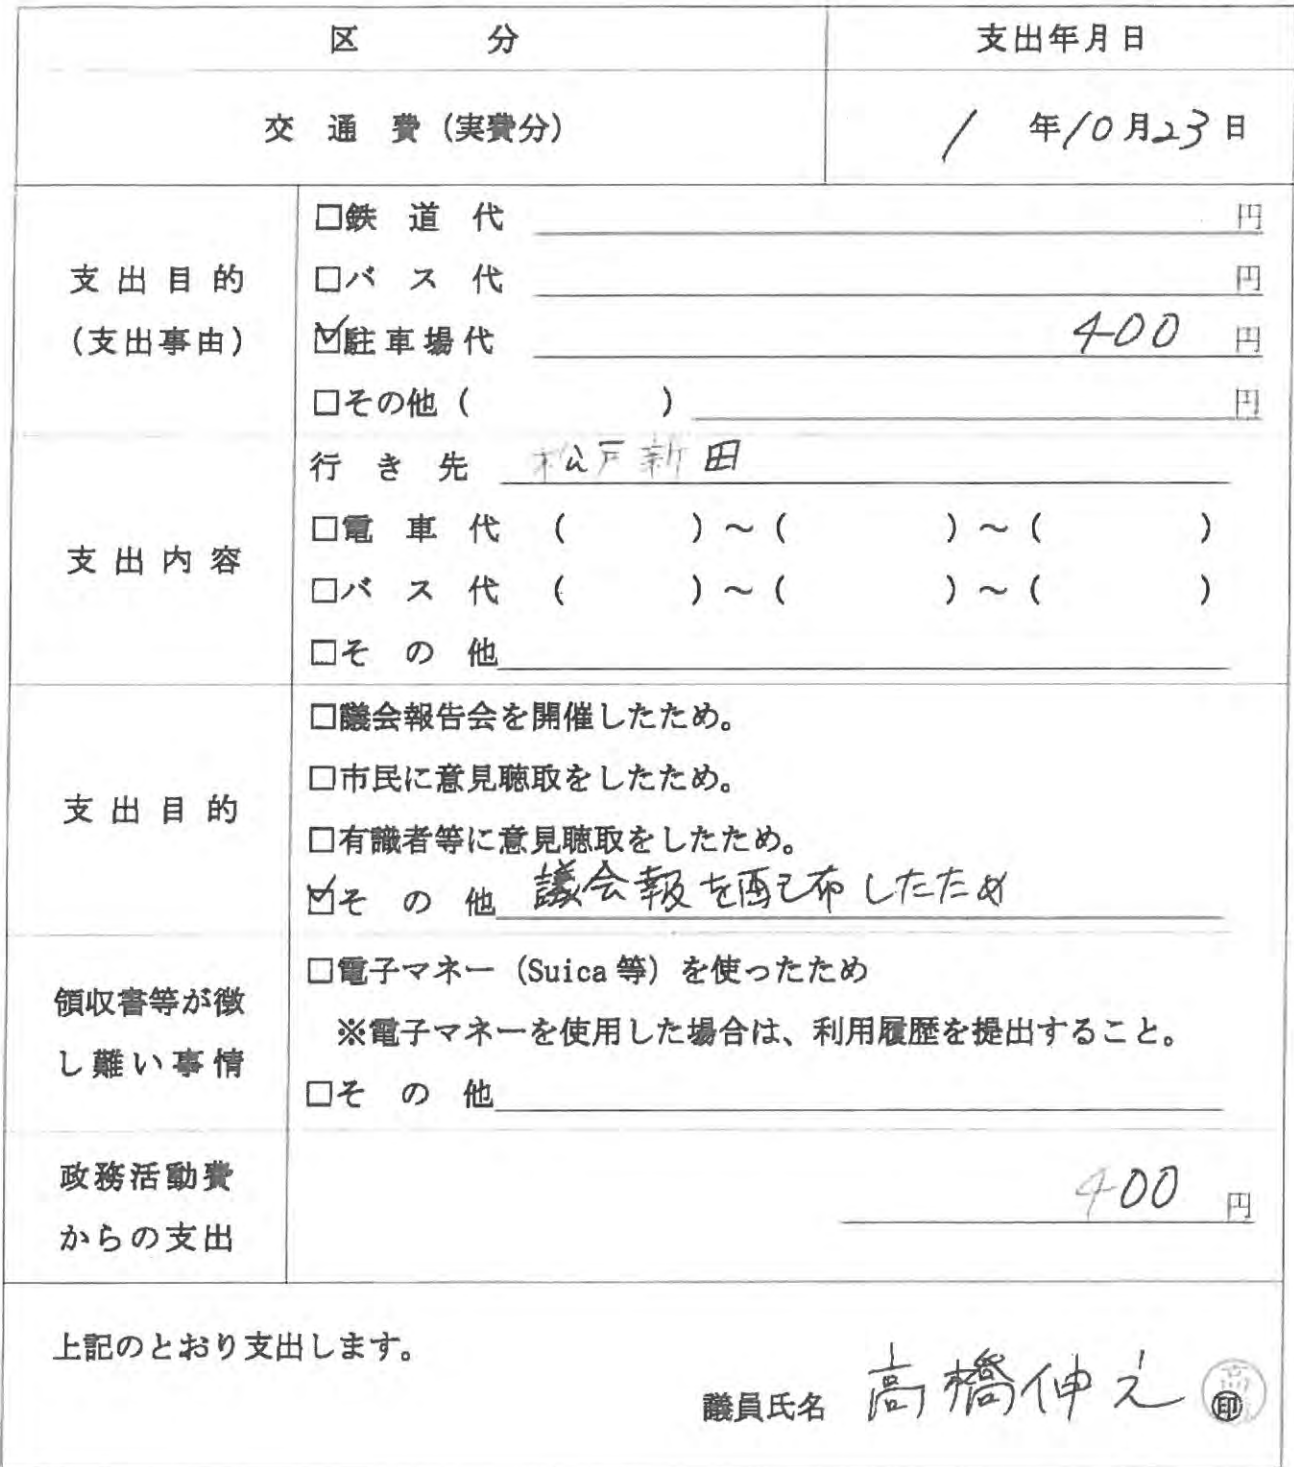 区 分 支出年月日
交 通 費 (実費分) 1 年10月23日
支出目的
(支出事由)
□鉄 道 代 円
□バ ス 代 円
☑駐車場代 400 円
□その他 ( ) 円
支出内容
行 き 先 松戸新田
□電 車 代 ( ) ~ ( ) ~ ( )
□バ ス 代 ( ) ~ ( ) ~ ( )
□そ の 他
支出目的
□議会報告会を開催したため。
□市民に意見聴取をしたため。
□有識者等に意見聴取をしたため。
☑そ の 他 議会報を配布したため
領収書等が徴
し難い事情
□電子マネー (Suica 等) を使ったため
※電子マネーを使用した場合は、利用履歴を提出すること。
□そ の 他
政務活動費
からの支出
400 円
上記のとおり支出します。
議員氏名 高橋伸之 印